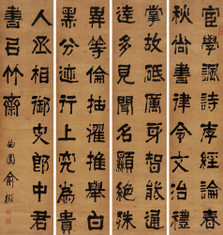 宦學諷詩孝經論春
秋尚書律令文治禮
掌故砥厲身智能通
達多見聞名顯絕殊
異等倫抽擢推舉白
黑分迹行上究為貴
人丞相御史郎中君
書 竹齋
曲園俞樾